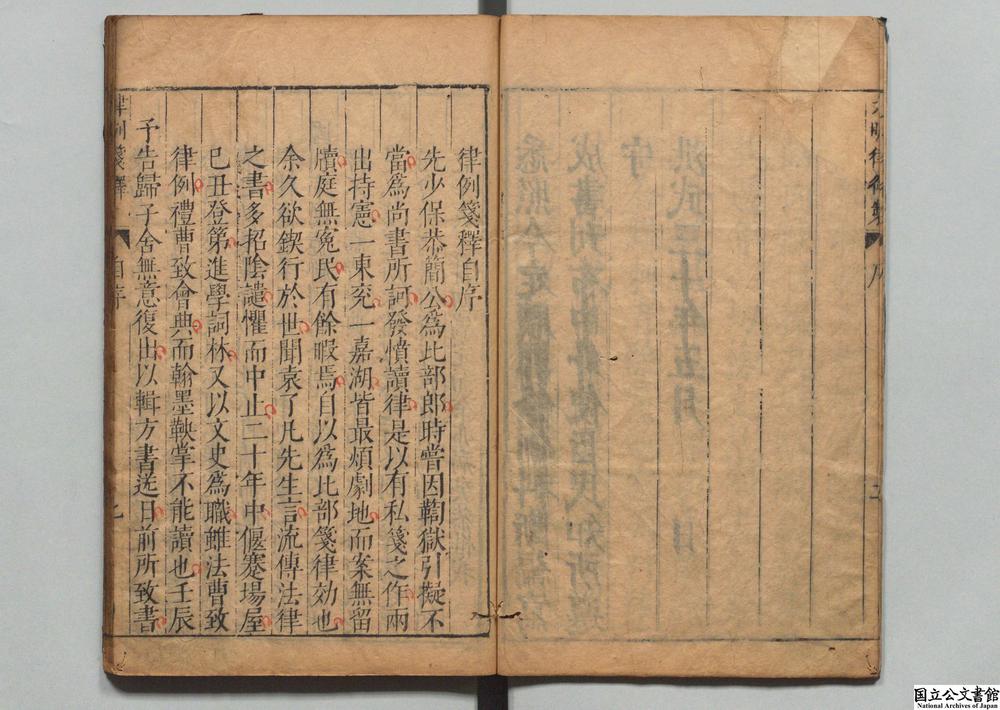 律例箋釋自序
先少保恭簡公爲比部郎時嘗因鞫獄引擬不
當爲尚書所訶發憤讀律是以有私箋之作兩
出持憲一東兗一嘉湖皆最煩劇地而案無留
牘庭無冤民有餘暇焉自以爲比部箋律効也
余久欲鍥行於世聞袁了凡先生言流傳法律
之書多招陰譴懼而中止二十年中偃蹇場屋
己丑登第進學詞林又以文史爲職雖法曹致
律例禮曹致會典而翰墨鞅掌不能讀也壬辰
予告歸子舍無意復出以輯方書迄日前所致書
律例箋釋 自序
国立公文書館
National Archives of Japan